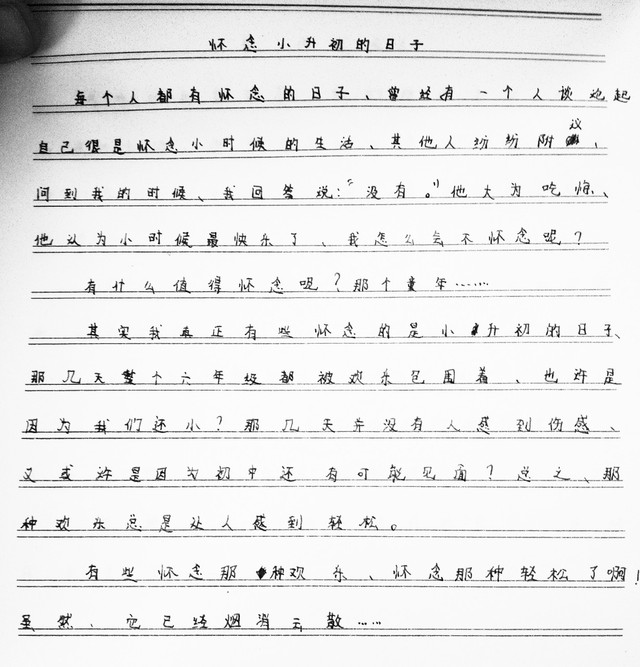 怀念小升初的日子
每个人都有怀念的日子、曾经有一个人谈起
自己很是怀念小时候的生活、其他人纷纷附议、
问到我的时候、我回答说:“没有。”他大为吃惊、
他认为小时候最快乐了、我怎么会不怀念呢?
有什么值得怀念呢?那个童年……
其实我真正有些怀念的是小升初的日子、
那几天整个六年级都被欢乐包围着、也许是
因为我们还小?那几天并没有人感到伤感、
又或许是因为初中还有可能见面?总之、那
种欢乐总是让人感到轻松。
有些怀念那种欢乐、怀念那种轻松了啊!
虽然、它已经烟消云散……